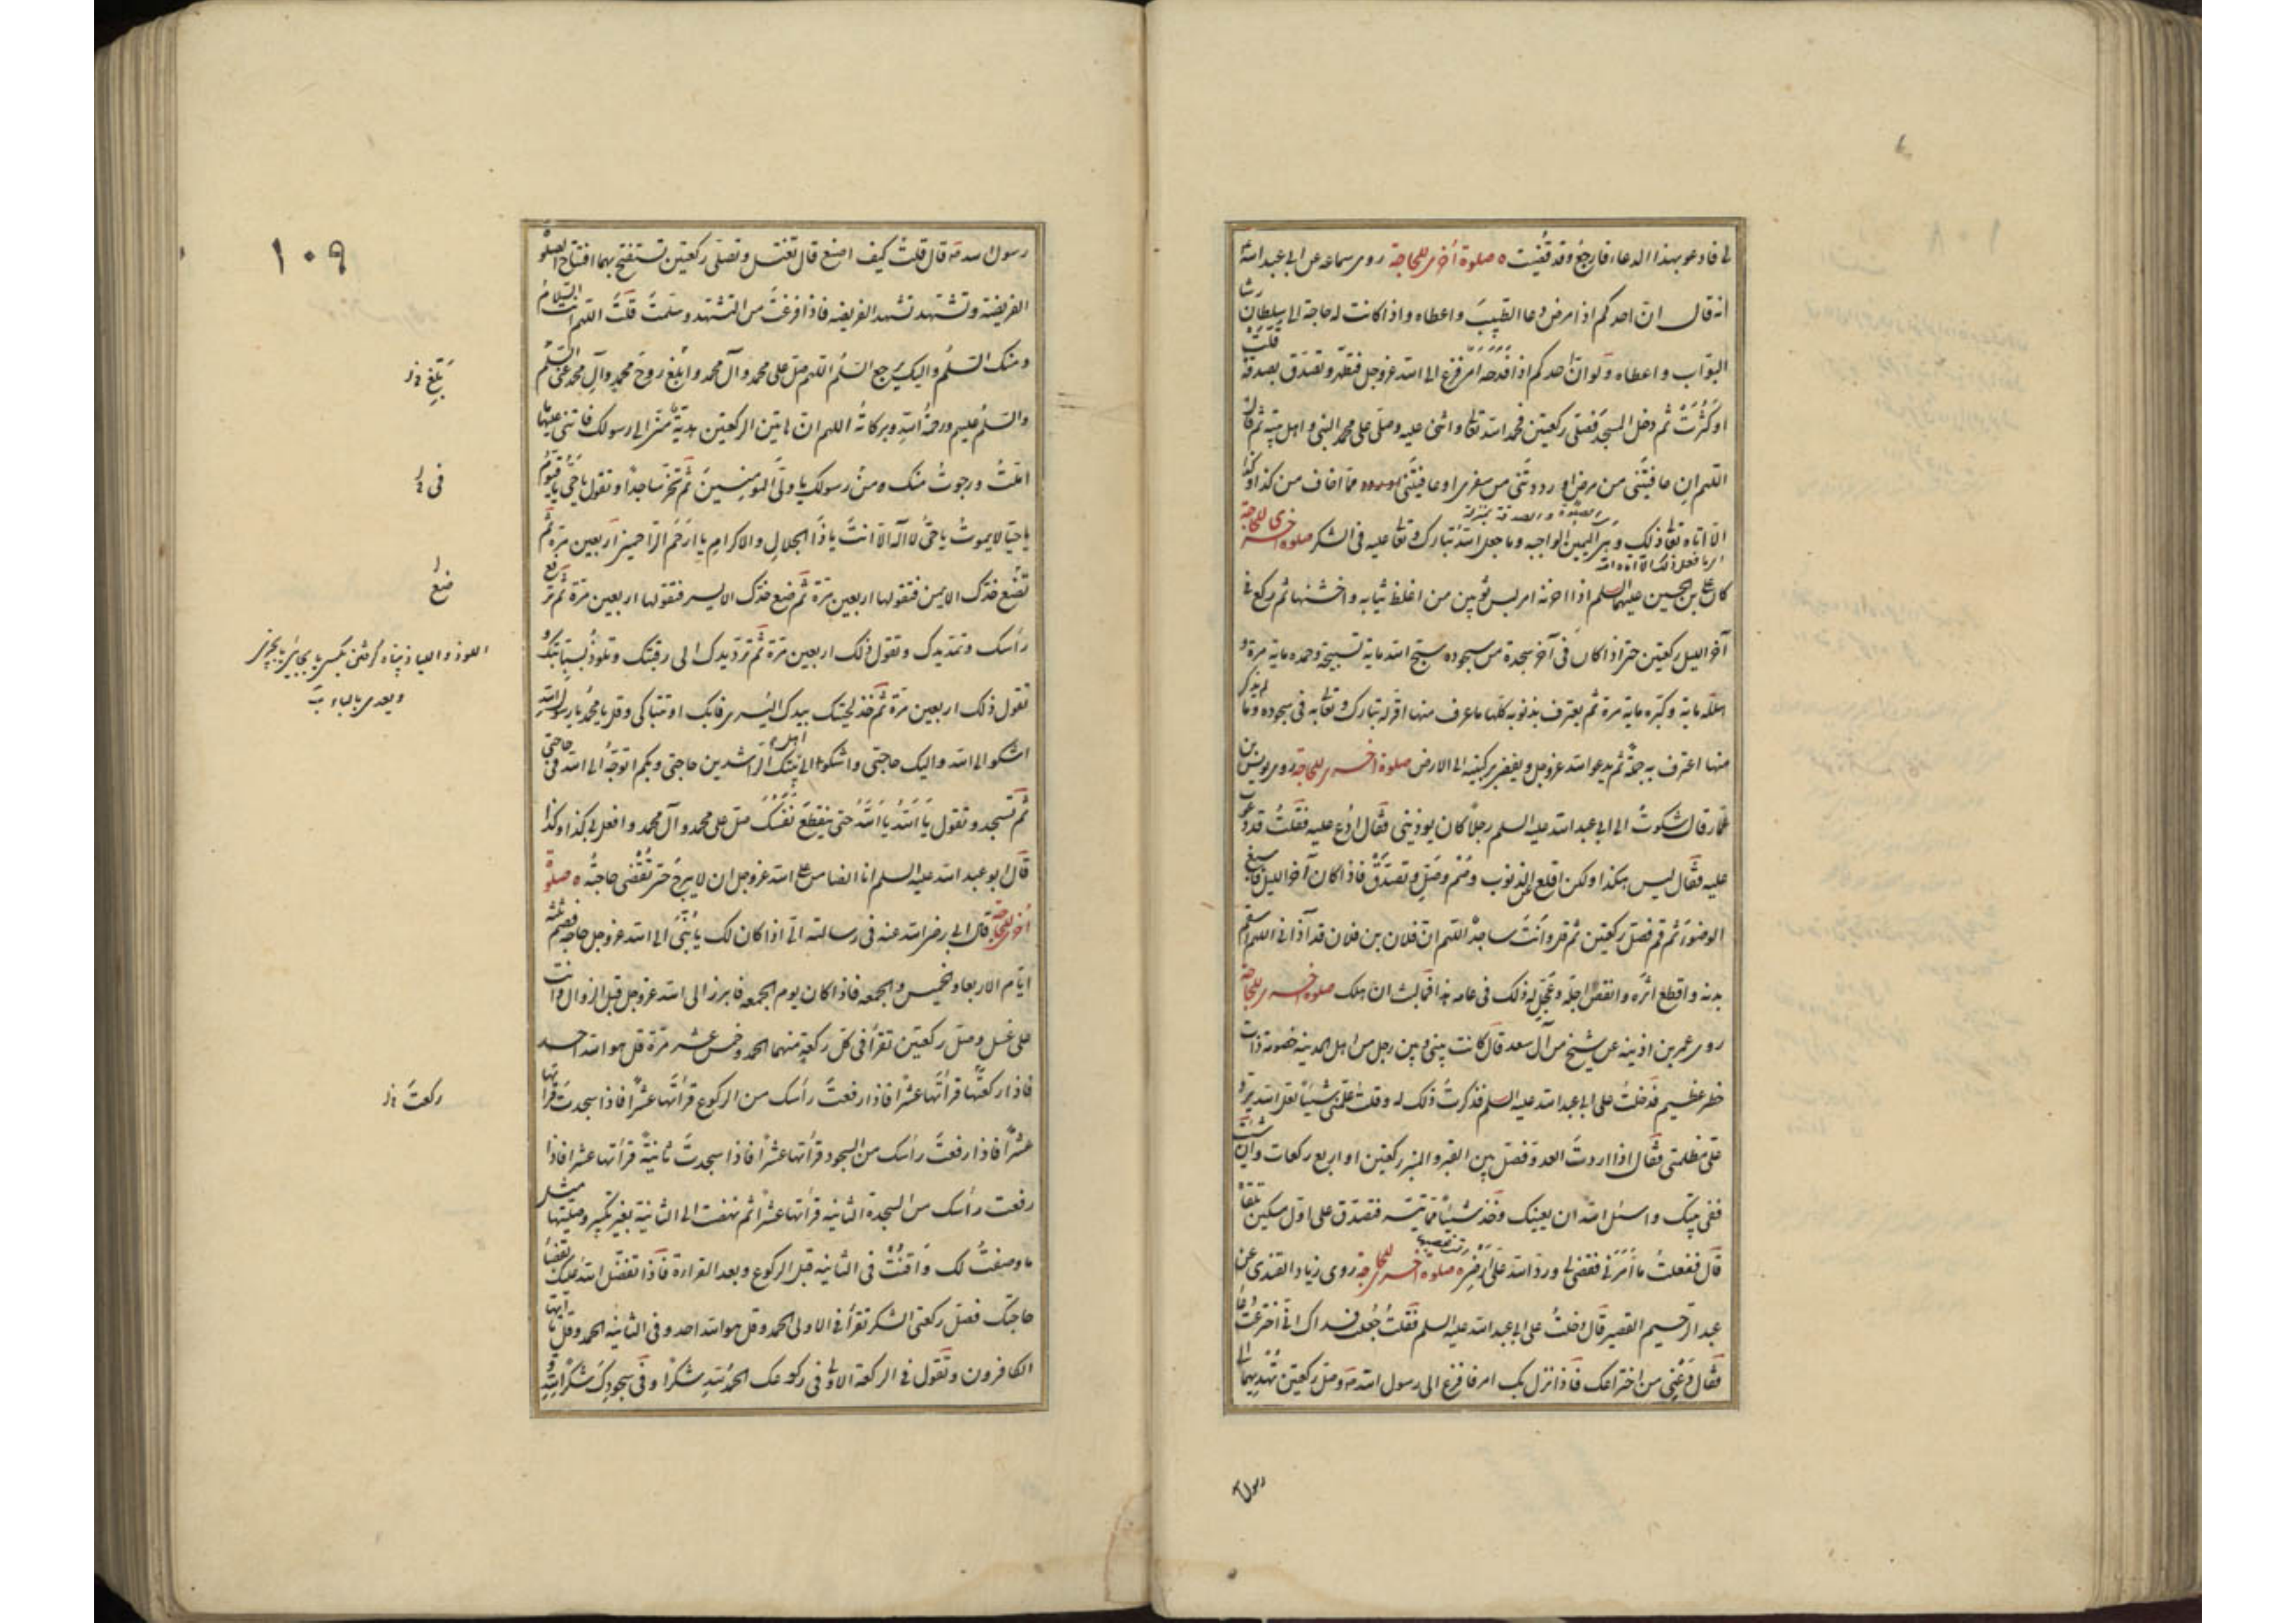 لى فادعو بهذا الدعاء فارجع وقد قضيت ه صلوة أخرى للحاجة روى سماعة عن ابى عبد الله ع
انه قال ان احدكم اذا مرض دعا الطبيب واعطاه واذا كانت له حاجة الى سلطان رشا
البواب واعطاه ولو ان احدكم اذا فدحه امر فزع الى الله عز وجل فتطهر وتصدق بصدقة قلت
او كثرت ثم دخل المسجد فصلى ركعتين فحمد الله تعا واثنى عليه وصلى على محمد النبى و اهل بيته ثم قال
اللهم ان عافيتنى من مرضى او رددتنى من سفرى او عافيتنى مما اخاف من كذا وكذا
الا اتاه تعا ذلك وهى اليمين الواجبه وما جعل الله تبارك وتعا عليه فى الشكر صلوة اخرى للحاجة
كان على بن الحسين عليهما السلم اذا احزنه امر لبس ثوبين من اغلظ ثيابه واخشنها ثم ركع فى
آخر الليل ركعتين حتى اذا كان فى آخر سجدة من سجوده سبح الله مايه تسبيحة وحمده مايه مرة و
هلله مايه وكبره مايه مرة ثم يعترف بذنوبه كلها ما عرف منها اقر له تبارك وتعا به فى سجوده وما لم يذكر
منها اعترف به جملة ثم يدعو الله عز وجل ويفضى بركبتيه الى الارض صلوة اخرى للحاجة روى يونس بن
عمار قال شكوت الى ابى عبد الله عليه السلم رجلا كان يوذينى فقال ادع عليه فقلت قد دعوت
عليه فقال ليس هكذا ولكن اقلع عن الذنوب وصم وصل وتصدق فاذا كان آخر الليل فاسبغ
الوضوء ثم قم فصل ركعتين ثم قل وانت ساجد اللهم ان فلان بن فلان قد آذانى اللهم اسقم
بدنه واقطع اثره وانقص اجله وعجل له ذلك فى عامه هذا فما لبث ان هلك صلوة اخرى للحاجة
روى عمر بن اذينه عن شيخ من آل سعد قال كانت بينى وبين رجل من اهل المدينه خصومة ذات
خطر عظيم فدخلت على ابى عبد الله عليه السلم فذكرت ذلك له وقلت علمنى شيئا لعل الله يرد
على مظلمتى فقال اذا اردت العدو فصل بين القبر والمنبر ركعتين او اربع ركعات وان شئت
ففى بيتك واسئل الله ان يعينك وخذ شيئا مما تيسر فتصدق على اول مسكين تلقاه
قال ففعلت ما امرنى فقضى لى ورد الله على ارضى ه صلوة اخرى للحاجة روى زياد القندى عن
عبد الرحيم القصير قال دخلت على ابى عبد الله عليه السلم فقلت جعلت فداك انى اخترعت دعا
فقال دعنى من اختراعك فاذا نزل بك امر فافزع الى رسول الله ص وصل ركعتين تهديهما الى
رسول
١٠٩
رسول الله ص قال قلت كيف اصنع قال تغتسل وتصلى ركعتين تستفتح بهما افتتاح الصلوة
الفريضة وتشهد تشهد الفريضه فاذا فرغت من التشهد وسلمت قلت اللهم انت السلام
ومنك السلم واليك يرجع السلم اللهم صل على محمد وآل محمد وابلغ روح محمد وآل محمد عنى السلم
والسلم عليهم ورحمة الله وبركاته اللهم ان هاتين الركعتين هدية منى الى رسولك فاثبنى عليهما ما
املت ورجوت منك ومن رسولك يا ولى المومنين ثم تخر ساجدا وتقول يا حى يا قيوم
يا حيا لا يموت يا حى لا اله الا انت يا ذا الجلال والاكرام يا ارحم الراحمين اربعين مرة ثم
تضع خدك الايمن فتقولها اربعين مرة ثم ضع خدك الايسر فتقولها اربعين مرة ثم ترفع
رأسك وتمد يدك وتقول ذلك اربعين مرة ثم ترد يدك الى رقبتك وتلوذ بسبابتك و
تقول ذلك اربعين مرة ثم خذ لحيتك بيدك اليسرى فابك او تباكى وقل يا محمد يا رسول الله
اشكو الى الله واليك حاجتى واشكو الى اهل بيتك الراشدين حاجتى وبكم اتوجه الى الله فى حاجتى
ثم تسجد وتقول يا الله يا الله حتى ينقطع نفسك صل على محمد وآل محمد وافعل بى كذا وكذا
قال ابو عبد الله عليه السلم انا الضامن على الله عز وجل ان لا يبرح حتى تقضى حاجته ه صلوة
اخرى للحاجة قال ابى رضى الله عنه فى رسالته الى اذا كان لك يا بنى الى الله عز وجل حاجة فصم ثلثة
ايام الاربعا والخميس والجمعه فاذا كان يوم الجمعه فابرز الى الله عز وجل قبل الزوال وانت
على غسل وصل ركعتين تقرأ فى كل ركعة منهما الحمد وخمس عشر مرة قل هو الله احد
فاذا ركعتها قرأتها عشرا فاذا رفعت رأسك من الركوع قرأتها عشرا فاذا سجدت قرأتها
عشرا فاذا رفعت رأسك من السجود قرأتها عشرا فاذا سجدت ثانية قرأتها عشرا فاذا
رفعت رأسك من السجدة الثانيه قرأتها عشرا ثم نهضت الى الثانية بغير تكبير وصليتها مثل
ما وصفت لك واقنت فى الثانيه قبل الركوع وبعد القراءة فاذا تفضل الله عليك بقضاء
حاجتك فصل ركعتى الشكر تقرأ فى الاولى الحمد وقل هو الله احد وفى الثانيه الحمد وقل يا ايها
الكافرون وتقول فى الركعة الاولى فى ركوعك الحمد لله شكرا وفى سجودك شكرا لله
تبلغ
فى
ضع
اللوذ والعياذ پناه گرفتن بكسى
ويعدى بالباء
ركعت